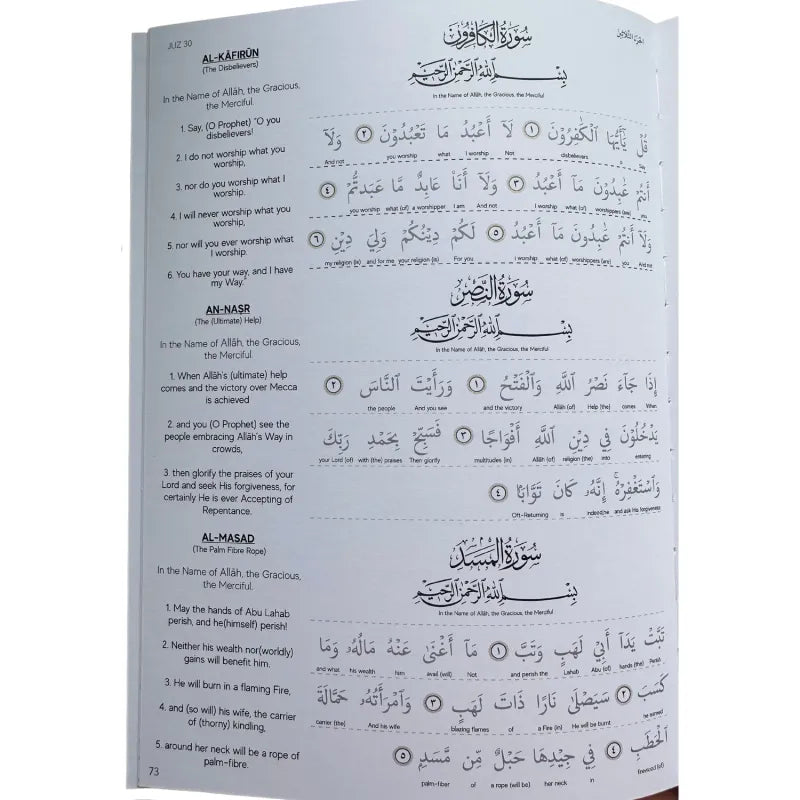 JUZ 30
AL-KĀFIRŪN
(The Disbelievers)
In the Name of Allāh, the Gracious,
the Merciful.
1. Say, (O Prophet) "O you
disbelievers!
2. I do not worship what you
worship,
3. nor do you worship what I
worship.
4. I will never worship what you
worship,
5. nor will you ever worship what
I worship.
6. You have your way, and I have
my Way."
AN-NAṢR
(The (Ultimate) Help)
In the Name of Allāh, the Gracious,
the Merciful.
1. When Allāh's (ultimate) help
comes and the victory over Mecca
is achieved
2. and you (O Prophet) see the
people embracing Allāh's Way in
crowds,
3. then glorify the praises of your
Lord and seek His forgiveness, for
certainly He is ever Accepting of
Repentance.
AL-MASAD
(The Palm Fibre Rope)
In the Name of Allāh, the Gracious,
the Merciful.
1. May the hands of Abu Lahab
perish, and he(himself) perish!
2. Neither his wealth nor(worldly)
gains will benefit him.
3. He will burn in a flaming Fire,
4. and (so will) his wife, the carrier
of (thorny) kindling,
5. around her neck will be a rope of
palm-fibre.
73
الجزء الثلاثين
سُورَةُ الْكَافِرُونَ
بِسْمِ اللَّهِ الرَّحْمَٰنِ الرَّحِيمِ
In the Name of Allāh, the Gracious, the Merciful
قُلْ يَٰٓأَيُّهَا ٱلْكَٰفِرُونَ ١ لَآ أَعْبُدُ مَا تَعْبُدُونَ ٢ وَلَآ
Say O disbelievers Not I worship what you worship And not
أَنتُمْ عَٰبِدُونَ مَآ أَعْبُدُ ٣ وَلَآ أَنَا۠ عَابِدٌ مَّا عَبَدتُّمْ ٤
you worshippers (are) what (of) I worship And not I am a worshipper what (of) you worship
وَلَآ أَنتُمْ عَٰبِدُونَ مَآ أَعْبُدُ ٥ لَكُمْ دِينُكُمْ وَلِيَ دِينِ ٦
And not you worshippers (are) what (of) I worship For you your religion (is) and for me my religion (is)
سُورَةُ النَّصْرِ
بِسْمِ اللَّهِ الرَّحْمَٰنِ الرَّحِيمِ
In the Name of Allāh, the Gracious, the Merciful
إِذَا جَآءَ نَصْرُ ٱللَّهِ وَٱلْفَتْحُ ١ وَرَأَيْتَ ٱلنَّاسَ ٢
When comes Help (the) Allāh (of) and the victory And you see the people
يَدْخُلُونَ فِي دِينِ ٱللَّهِ أَفْوَاجًا ٣ فَسَبِّحْ بِحَمْدِ رَبِّكَ
entering into religion (the) Allāh (of) multitudes (in) Then glorify with (the) praises your Lord (of)
وَٱسْتَغْفِرْهُ ۚ إِنَّهُۥ كَانَ تَوَّابًۢا ٤
and ask His forgiveness Indeed,he is Oft-Returning
سُورَةُ الْمَسَدِ
بِسْمِ اللَّهِ الرَّحْمَٰنِ الرَّحِيمِ
In the Name of Allāh, the Gracious, the Merciful
تَبَّتْ يَدَآ أَبِي لَهَبٍ وَتَبَّ ١ مَآ أَغْنَىٰ عَنْهُ مَالُهُۥ وَمَا
Perish hands (the) Abu (of) Lahab and perish the Not avail (will) him his wealth and what
كَسَبَ ٢ سَيَصْلَىٰ نَارًا ذَاتَ لَهَبٍ ٣ وَٱمْرَأَتُهُۥ حَمَّالَةَ
he earned He will be burnt a Fire (in) of blazing flames And his wife carrier (the)
ٱلْحَطَبِ ٤ فِي جِيدِهَا حَبْلٌ مِّن مَّسَدٍۭ ٥
firewood (of) in her neck a rope (will be) of palm-fiber